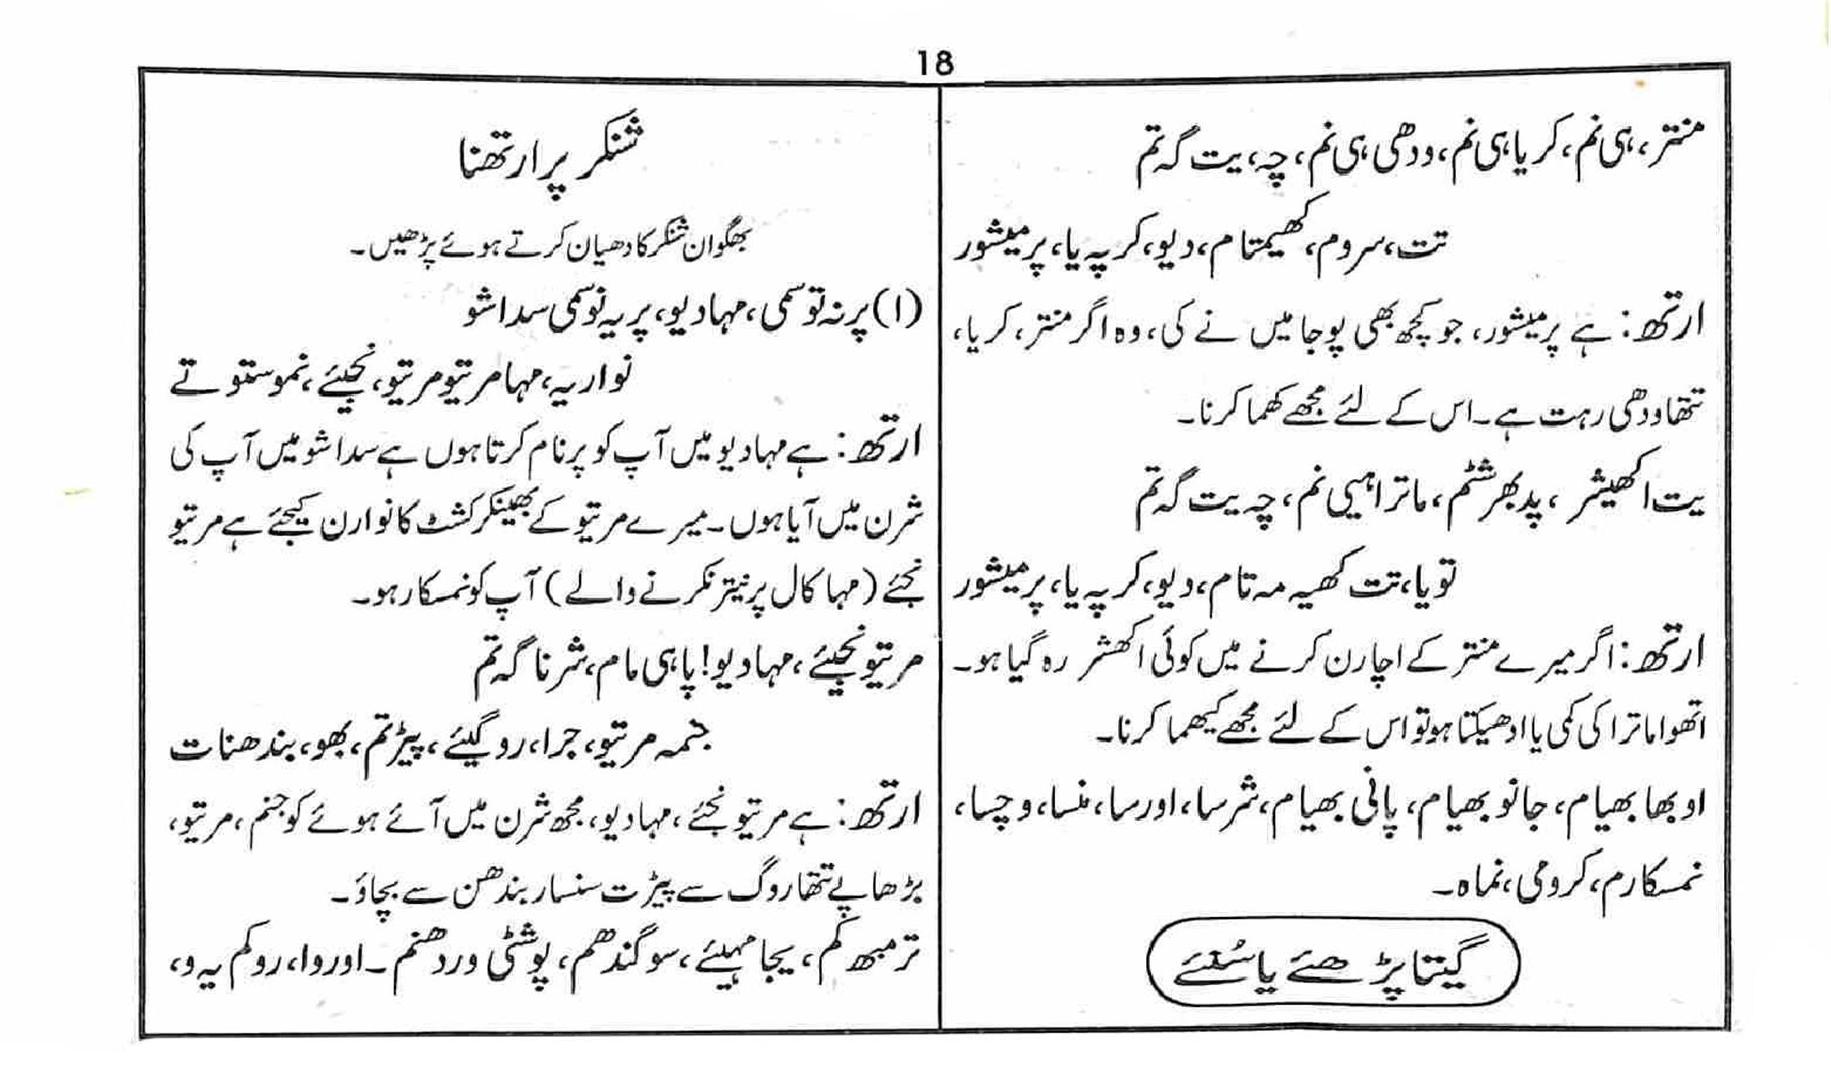 18
منتر، ہی نم، کریا ہی نم، ودھی ہی نم، چہ، یت گہ تم
تت، سروم، کھیمتا م، دیو، کرپہ یا، پرمیشور
ارتھ: ہے پرمیشور، جو کچھ بھی پوجا میں نے کی، وہ اگر منتر، کریا،
تتھا ودھی رہت ہے۔ اس کے لئے مجھے کھما کرنا۔
یت اکھیشر ، پدبھرشٹم، ماترا ہیی نم، چہ یت گہ تم
تویا، تت کھیہ مہ تام، دیو، کرپہ یا، پرمیشور
ارتھ: اگر میرے منتر کے اچارن کرنے میں کوئی اکھشر رہ گیا ہو۔
اتھوا ماترا کی کمی یا ادھیکتا ہو تو اس کے لئے مجھے کھیما کرنا۔
اوبھا بھیام، جانو بھیام، پانی بھیام، شرسا، اورسا، منسا، وچسا،
نمسکارم، کرومی، نماہ۔
گیتا پڑھئے یا سُنئے
شنکر پرارتھنا
بھگوان شنکر کا دھیان کرتے ہوئے پڑھیں۔
(۱) پرنہ توسمی، مہادیو، پریہ نوسمی سداشو
نواریہ، مہامرتیو مرتیو، نجیئے، نموستوتے
ارتھ: ہے مہادیو میں آپ کو پرنام کرتا ہوں ہے سداشو میں آپ کی
شرن میں آیا ہوں۔ میرے مرتیو کے بھینکر کشٹ کا نوارن کیجئے ہے مرتیو
نجئے (مہا کال پر نیترنکرنے والے) آپ کو نمسکار ہو۔
مرتیو نجیئے، مہادیو! پاہی مام، شرنا گہ تم
جمہ مرتیو، جرا، روگیئے، پیڑتم، بھو، بندھنات
ارتھ: ہے مرتیو نجئے، مہادیو، مجھ شرن میں آئے ہوئے کو جنم، مرتیو،
بڑھاپے تتھا روگ سے پیڑت سنسار بندھن سے بچاؤ۔
ترمبھ کم، یجا مہیئے، سوگندھم، پوشٹی وردھنم۔ اوروا، روکم یہ و،